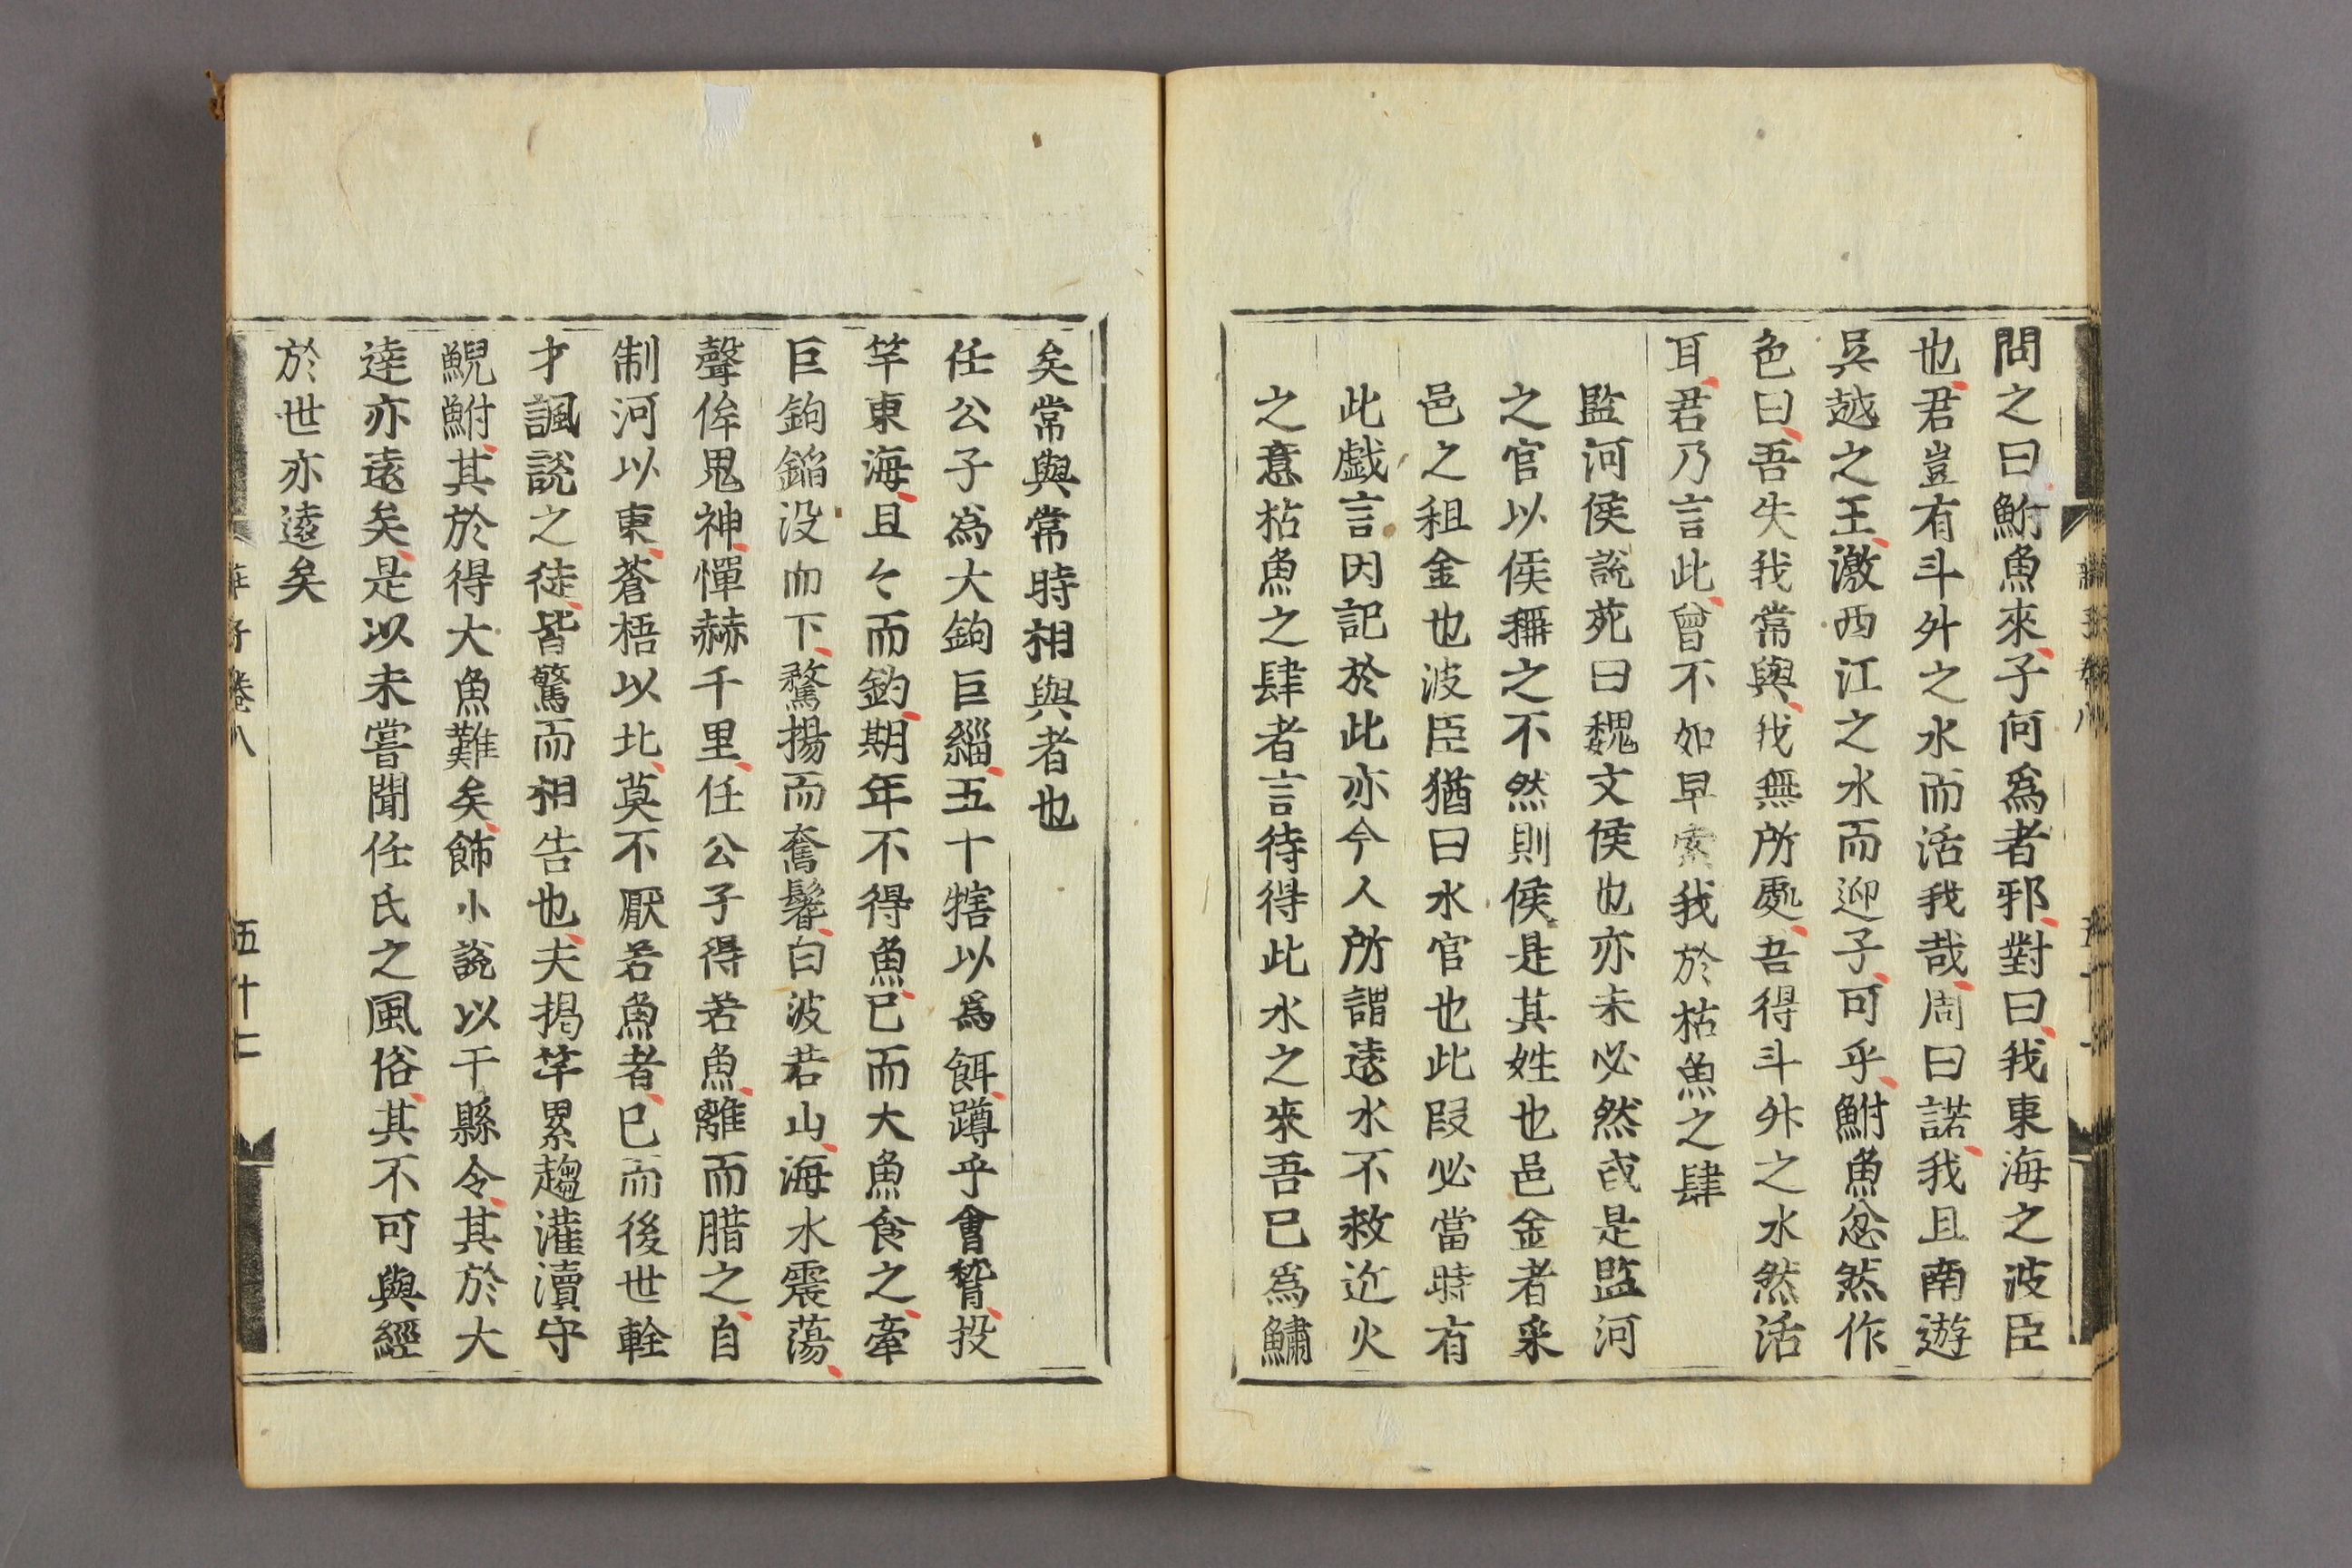 問之曰鮒魚來子何爲者邪對曰我東海之波臣
也君豈有斗升之水而活我哉周曰諾我且南遊
吳越之王激西江之水而迎子可乎鮒魚忿然作
色曰吾失我常與我無所處吾得斗升之水然活
耳君乃言此曾不如早索我於枯魚之肆
監河侯說苑曰魏文侯也亦未必然或是監河
之官以侯稱之不然則侯是其姓也邑金者采
邑之租金也波臣猶曰水官也此段必當時有
此戲言因記於此亦今人所謂遠水不救近火
之意枯魚之肆者言待得此水之來吾已爲鱐
矣常與常時相與者也
任公子爲大鉤巨緇五十犗以爲餌蹲乎會稽投
竿東海且々而釣期年不得魚已而大魚食之牽
巨鉤錎沒而下鶩揚而奮鬐白波若山海水震蕩
聲侔鬼神憚赫千里任公子得若魚離而腊之自
制河以東蒼梧以北莫不厭若魚者已而後世輇
才諷說之徒皆驚而相告也夫揭竿累趨灌瀆守
鯢鮒其於得大魚難矣飾小說以干縣令其於大
達亦遠矣是以未嘗聞任氏之風俗其不可與經
於世亦遠矣
莊子卷八 五十七